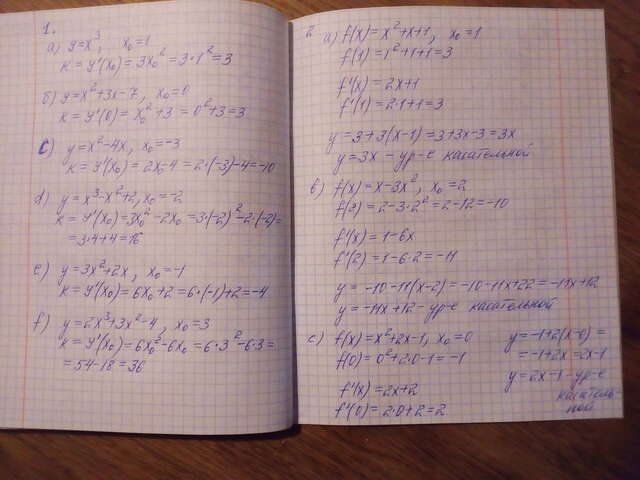 1.
a) y=x³, x₀=1
к = y'(x₀) = 3x₀² = 3·1² = 3
б) y=x²+3x-7, x₀=0
к = y'(0) = x₀² + 3 = 0² + 3 = 3
c) y=x²-4x, x₀=-3
к = y'(x₀) = 2x₀-4 = 2·(-3)-4 = -10
d) y = x³-x²+2, x₀=-2
к = y'(x₀) = 3x₀² - 2x₀ = 3·(-2)² - 2·(-2) =
= 3·4+4 = 16
e) y = 3x²+2x, x₀ = -1
к = y'(x₀) = 6x₀ + 2 = 6·(-1)+2 = -4
f) y = 2x³+3x²-4, x₀ = 3
к = y'(x₀) = 6x₀² - 6x₀ = 6·3² - 6·3 =
= 54-18 = 36
2. a) f(x) = x²+x+1, x₀=1
f(1) = 1²+1+1 = 3
f'(x) = 2x+1
f'(1) = 2·1+1 = 3
y = 3+3(x-1) = 3+3x-3 = 3x
y = 3x - ур-е касательной
в) f(x) = x-3x², x₀ = 2
f(2) = 2-3·2² = 2-12 = -10
f'(x) = 1-6x
f'(2) = 1-6·2 = -11
y = -10-11(x-2) = -10-11x+22 = -11x+12
y = -11x+12 - ур-е касательной
c) f(x) = x²+2x-1, x₀ = 0
f(0) = 0²+2·0-1 = -1
f'(x) = 2x+2
f'(0) = 2·0+2 = 2
y = -1+2(x-0) =
= -1+2x = 2x-1
y = 2x-1 - ур-е
касатель-
ной